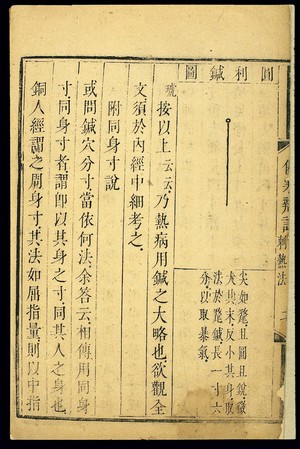 刺熱法
二
圓利鍼圖
尖如氂且圓且銳微
大其末反小其身取
法於氂鍼長一寸六
分以取暴氣
琥按以上云云乃熱病用鍼之大略也欲觀全
文須於內經中細考之
附同身寸說
或問鍼穴分寸當依何法余答云相傳用同身
寸同身寸者謂即以其身之寸同其人之身也
銅人經謂之同身寸其法如屈指量則以中指